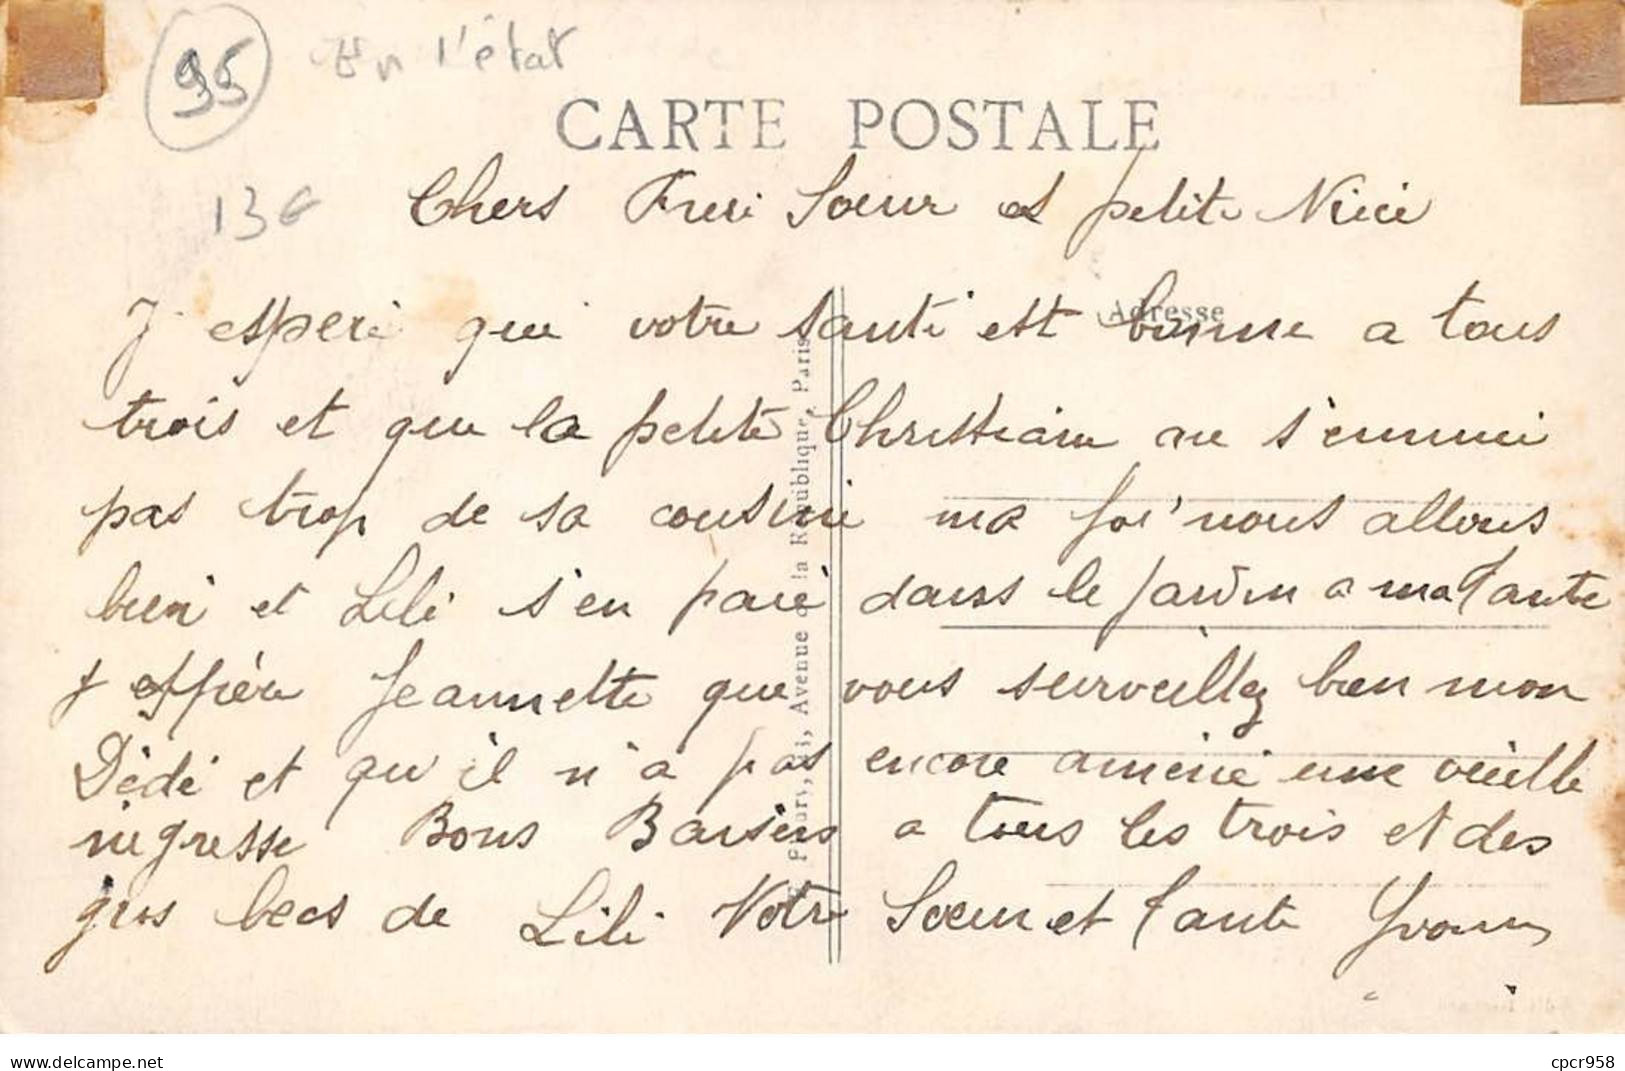 95 En l'état
CARTE POSTALE
13€
Chers Frere Soeur et petite Niece
Adresse
J espere que votre santé est bonne a tous
trois et que la petite Christiane ne s'ennuie
pas trop de sa cousine ma foi nous allons
bien et Lili s'en paie dans le jardin a ma Tante
j espère Jeannette que vous surveillez bien mon
Dédé et qu'il n'a pas encore amené une vieille
négresse Bons Baisers a tous les trois et des
gros becs de Lili Votre Soeur et Tante Yvonne
Fleury, Avenue de la République, Paris
delcampe.net
cpcr958